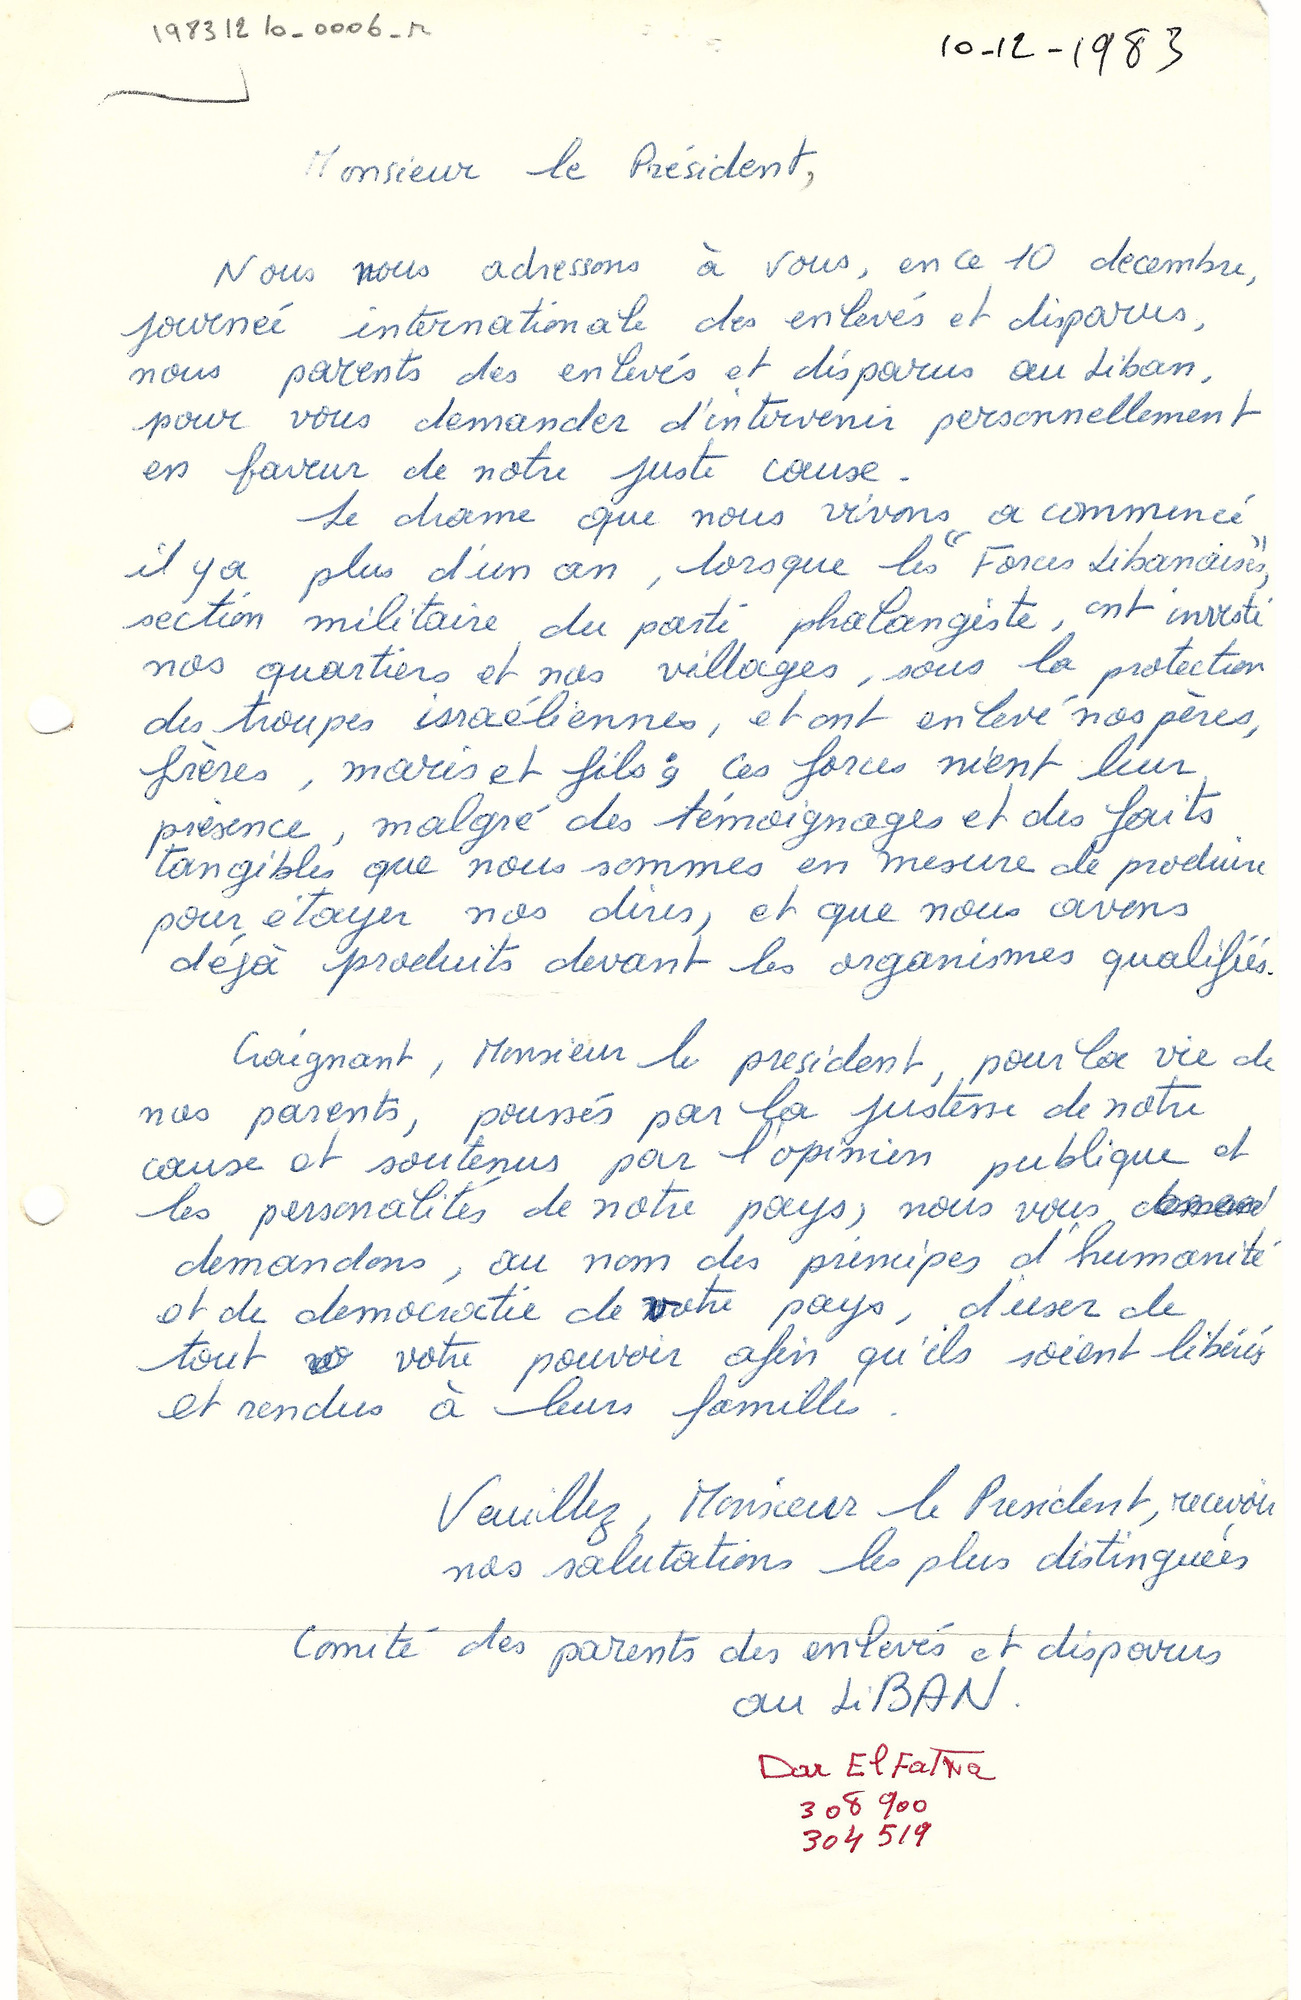 19831210_0006_r
10-12-1983
Monsieur le Président,
Nous nous adressons à vous, en ce 10 decembre,
journeé internationale des enlevés et disparus,
nous parents des enlevés et disparus au Liban,
pour vous demander d'intervenir personnellement
en faveur de notre juste cause.
Le drame que nous vivons a commencé
il y a plus d'un an, lorsque les "Forces Libanaises",
section militaire du parti phalangiste, ont investi
nos quartiers et nos villages, sous la protection
des troupes israéliennes, et ont enlevé nos pères,
frères, maris et fils; ces forces nient leur
présence, malgré des témoignages et des faits
tangibles que nous sommes en mesure de produire
pour étayer nos dires, et que nous avons
déjà produits devant les organismes qualifiés.
Craignant, Monsieur le president, pour la vie de
nos parents, poussés par la justesse de notre
cause et soutenus par l'opinion publique et
les personalités de notre pays, nous vous
demandons, au nom des principes d'humanité
et de democratie de votre pays, d'user de
tout votre pouvoir afin qu'ils soient libérés
et rendus à leurs familles.
Veuillez, Monsieur le President, recevoir
nos salutations les plus distinguées
Comité des parents des enlevés et disparus
au LiBAN.
Dar El Fatwa
308 900
304 519